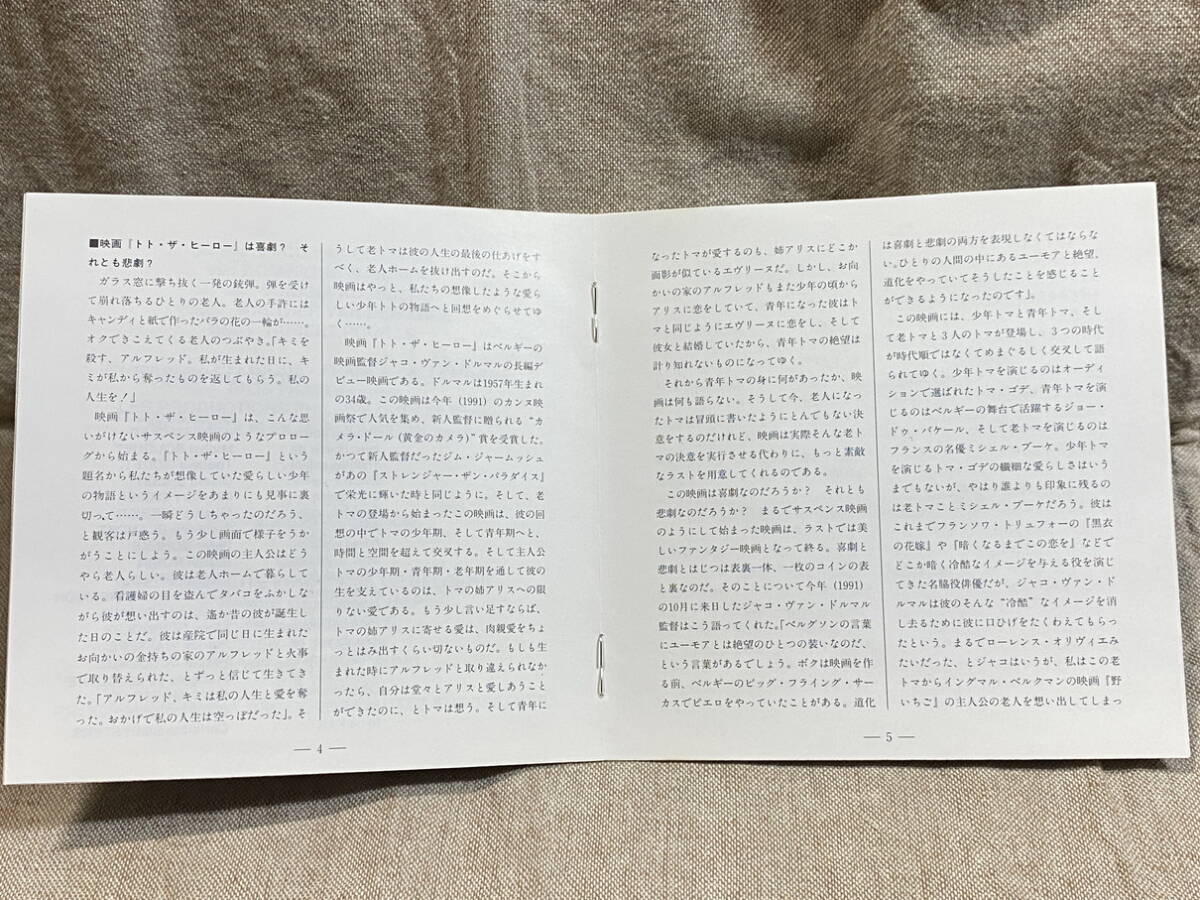 ■映画『トト・ザ・ヒーロー』は喜劇？　そ
れとも悲劇？
　ガラス窓に撃ち抜く一発の銃弾。弾を受け
て崩れ落ちるひとりの老人。老人の手許には
キャンディと紙で作ったバラの花の一輪が……。
オクできこえてくる老人のつぶやき。「キミを
殺す、アルフレッド。私が生まれた日に、キ
ミが私から奪ったものを返してもらう。私の
人生を！」
　映画『トト・ザ・ヒーロー』は、こんな思
いがけないサスペンス映画のようなプロロー
グから始まる。『トト・ザ・ヒーロー』という
題名から私たちが想像していた愛らしい少年
の物語というイメージをあまりにも見事に裏
切って……。一瞬どうしちゃったのだろう、
と観客は戸惑う。もう少し画面で様子をうか
がうことにしよう。この映画の主人公はどう
やら老人らしい。彼は老人ホームで暮らして
いる。看護婦の目を盗んでタバコをふかしな
がら彼が想い出すのは、遙か昔の彼が誕生し
た日のことだ。彼は産院で同じ日に生まれた
お向かいの金持ちの家のアルフレッドと火事
で取り替えられた、とずっと信じて生きてき
た。「アルフレッド、キミは私の人生と愛を奪
った。おかげで私の人生は空っぽだった」。そ
うして老トマは彼の人生の最後の仕あげをす
べく、老人ホームを抜け出すのだ。そこから
映画はやっと、私たちの想像したような愛ら
しい少年トトの物語へと回想をめぐらせてゆ
く……。
　映画『トト・ザ・ヒーロー』はベルギーの
映画監督ジャコ・ヴァン・ドルマルの長編デ
ビュー映画である。ドルマルは1957年生まれ
の34歳。この映画は今年（1991）のカンヌ映
画祭で人気を集め、新人監督に贈られる“カ
メラ・ドール（黄金のカメラ）”賞を受賞した。
かつて新人監督だったジム・ジャームッシュ
があの『ストレンジャー・ザン・パラダイス』
で栄光に輝いた時と同じように。そして、老
トマの登場から始まったこの映画は、彼の回
想の中でトマの少年期、そして青年期へと、
時間と空間を超えて交叉する。そして主人公
トマの少年期・青年期・老年期を通して彼の
生を支えているのは、トマの姉アリスへの限
りない愛である。もう少し言い足すならば、
トマの姉アリスに寄せる愛は、肉親愛をちょ
っとはみ出すくらい切ないものだ。もしも生
まれた時にアルフレッドと取り違えられなか
ったら、自分は堂々とアリスと愛しあうこと
ができたのに、とトマは想う。そして青年に
― 4 ―
なったトマが愛するのも、姉アリスにどこか
面影が似ているエヴリーヌだ。しかし、お向
かいの家のアルフレッドもまた少年の頃から
アリスに恋をしていて、青年になった彼はト
マと同じようにエヴリーヌに恋をし、そして
彼女と結婚していたから、青年トマの絶望は
計り知れないものになってゆく。
　それから青年トマの身に何があったか、映
画は何も語らない。そうして今、老人になっ
たトマは冒頭に書いたようにとんでもない決
意をするのだけれど、映画は実際そんな老ト
マの決意を実行させる代わりに、もっと素敵
なラストを用意してくれるのである。
　この映画は喜劇なのだろうか？　それとも
悲劇なのだろうか？　まるでサスペンス映画
のようにして始まった映画は、ラストでは美
しいファンタジー映画となって終る。喜劇と
悲劇とはじつは表裏一体、一枚のコインの表
と裏なのだ。そのことについて今年（1991）
の10月に来日したジャコ・ヴァン・ドルマル
監督はこう語ってくれた。「ベルグソンの言葉
にユーモアとは絶望のひとつの装いなのだ、
という言葉があるでしょう。ボクは映画を作
る前、ベルギーのビッグ・フライング・サー
カスでピエロをやっていたことがある。道化
は喜劇と悲劇の両方を表現しなくてはならな
い。ひとりの人間の中にあるユーモアと絶望、
道化をやっていてそうしたことを感じること
ができるようになったのです」。
　この映画には、少年トマと青年トマ、そし
て老トマと３人のトマが登場し、３つの時代
が時代順ではなくてめまぐるしく交叉して語
られてゆく。少年トマを演じるのはオーディ
ションで選ばれたトマ・ゴデ、青年トマを演
じるのはベルギーの舞台で活躍するジョー・
ドゥ・バケール、そして老トマを演じるのは
フランスの名優ミシェル・ブーケ。少年トマ
を演じるトマ・ゴデの繊細な愛らしさはいう
までもないが、やはり誰よりも印象に残るの
は老トマことミシェル・ブーケだろう。彼は
これまでフランソワ・トリュフォーの『黒衣
の花嫁』や『暗くなるまでこの恋を』などで
どこか暗く冷酷なイメージを与える役を演じ
てきた名脇役俳優だが、ジャコ・ヴァン・ド
ルマルは彼のそんな“冷酷”なイメージを消
し去るために彼に口ひげをたくわえてもらっ
たという。まるでローレンス・オリヴィエみ
たいだった、とジャコはいうが、私はこの老
トマからイングマル・ベルクマンの映画『野
いちご』の主人公の老人を想い出してしまっ
― 5 ―